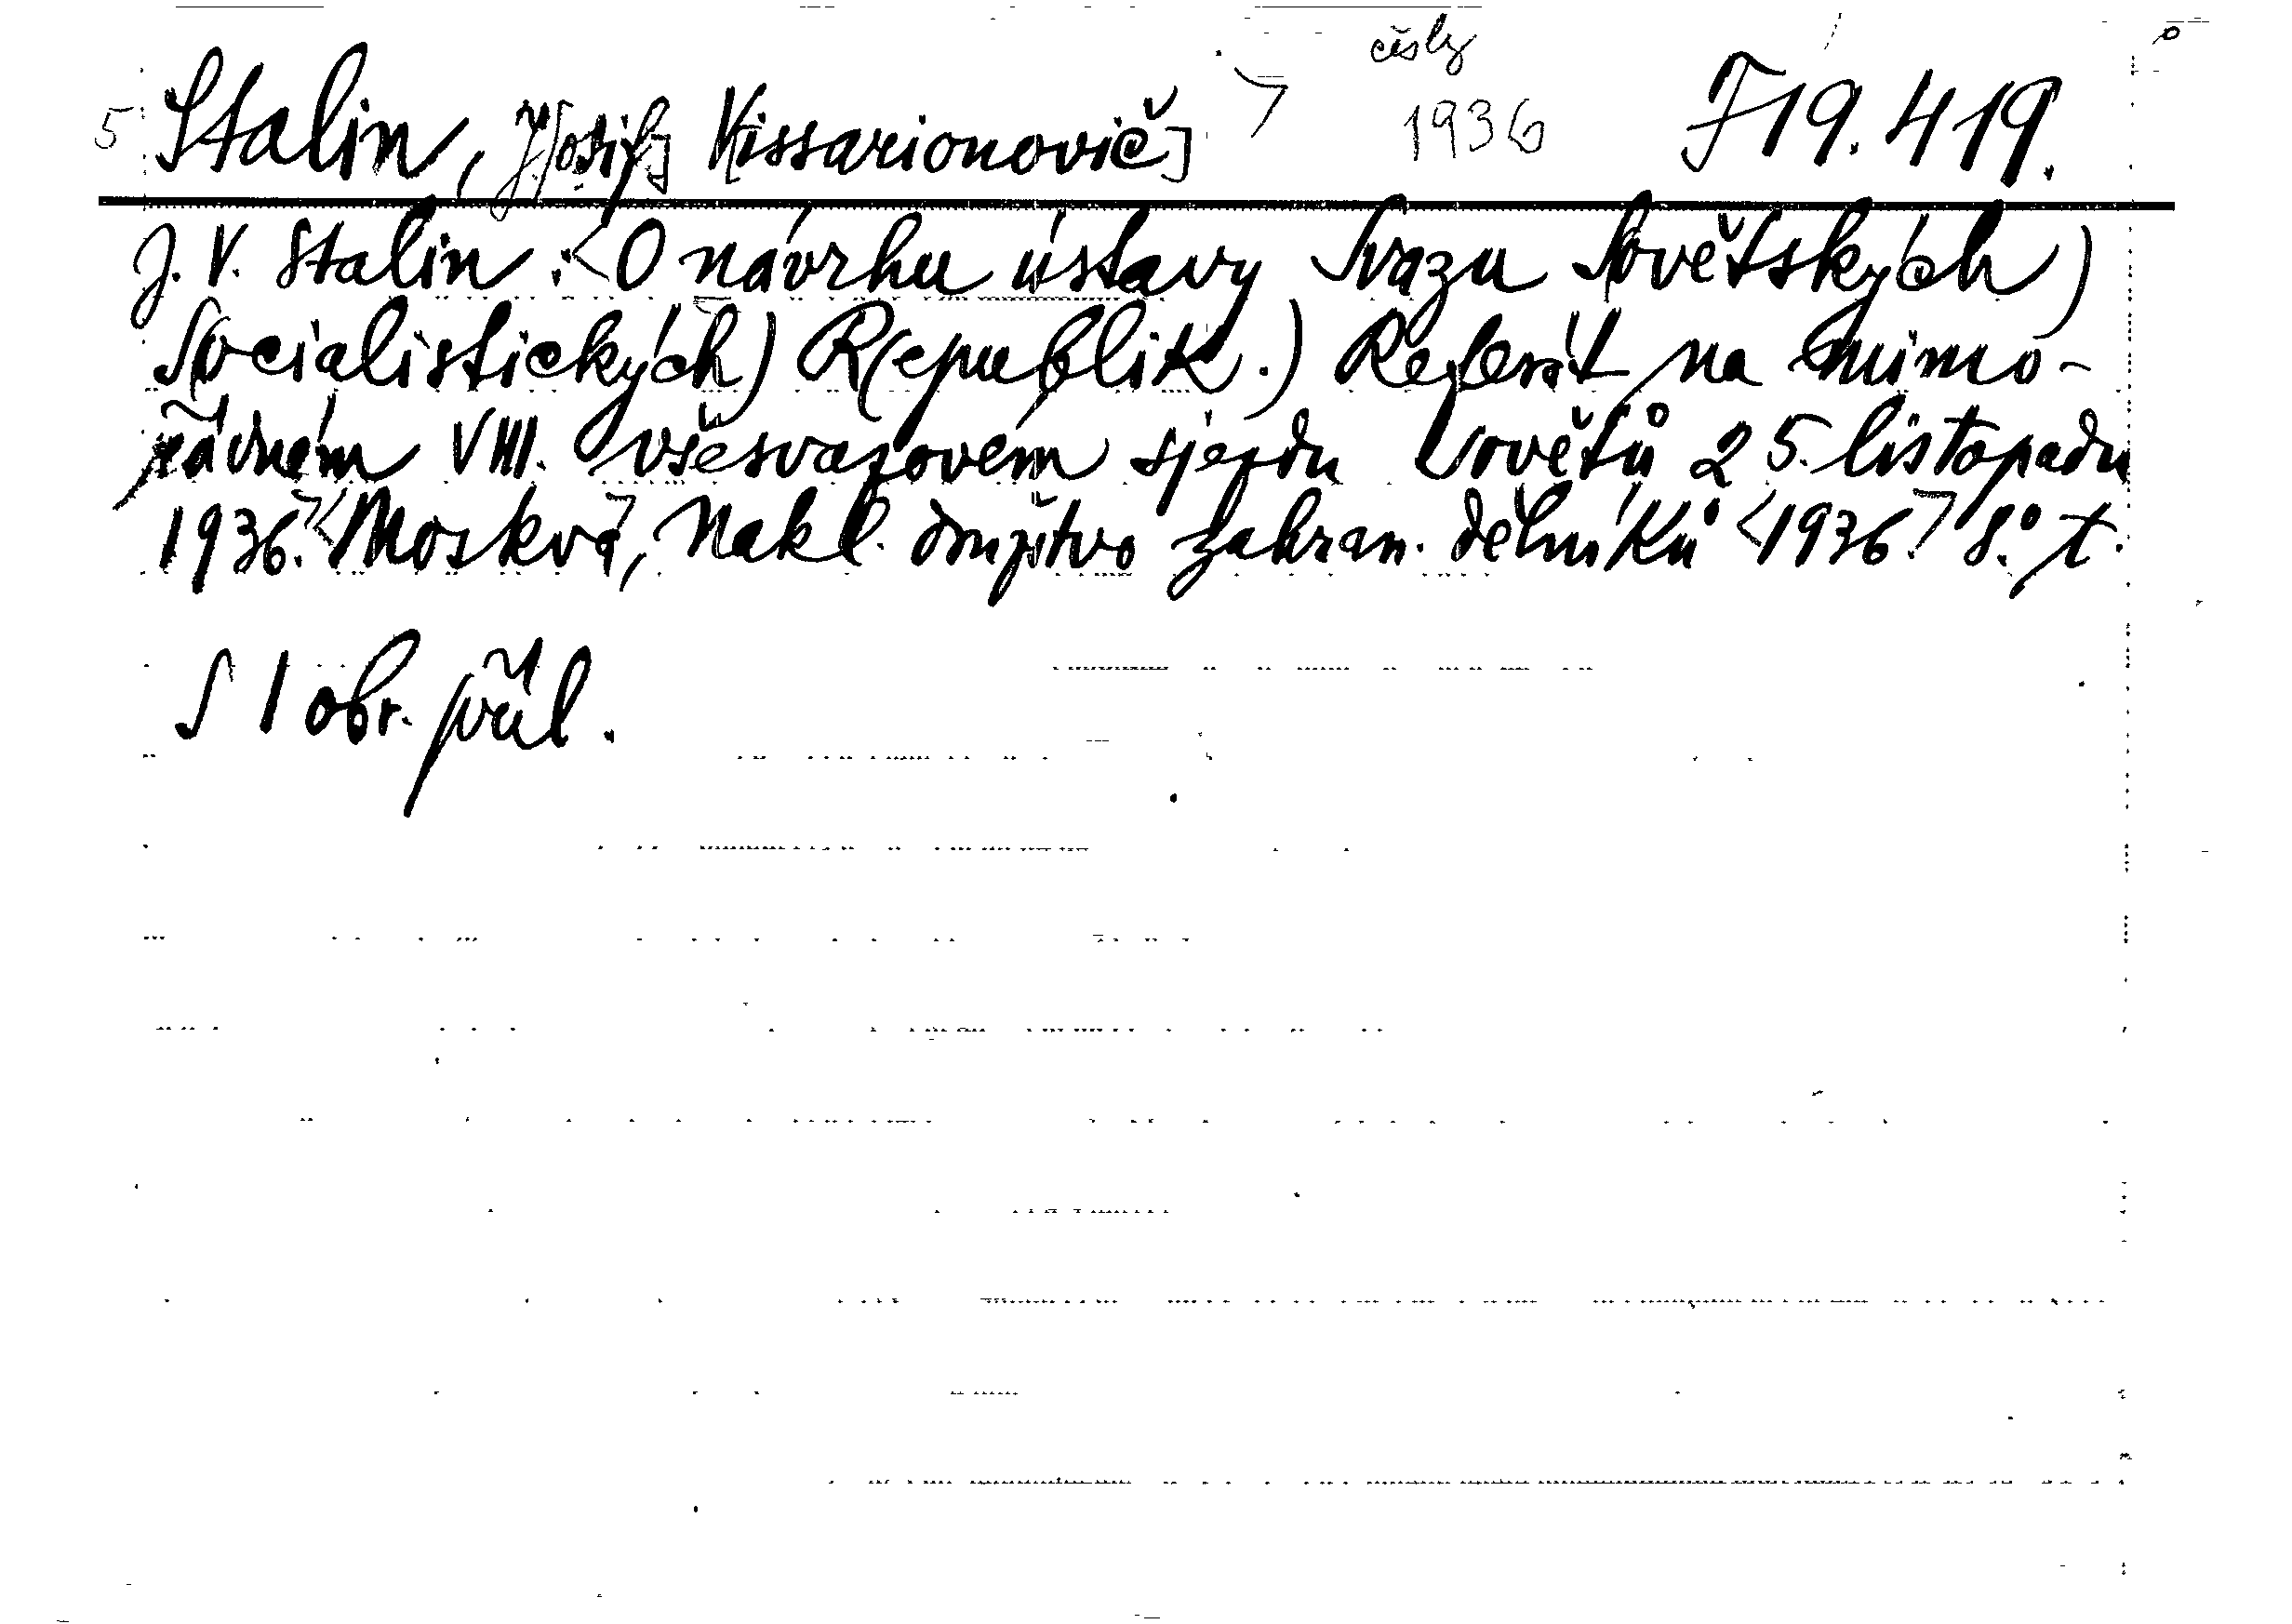 česky
5 Stalin, J[osif] V[issarionovič] 1936 F 19.419.
J. V. Stalin: <O návrhu ústavy Svazu S(ovětských)
S(ocialistických) R(epublik.) Referát na mimo-
řádném VIII. všesvazovém sjezdu Sovětů 25. listopadu
1936.> <Moskva>, Nakl. družstvo zahran. dělníků <1936.> 8.° t.
S 1 obr. příl.